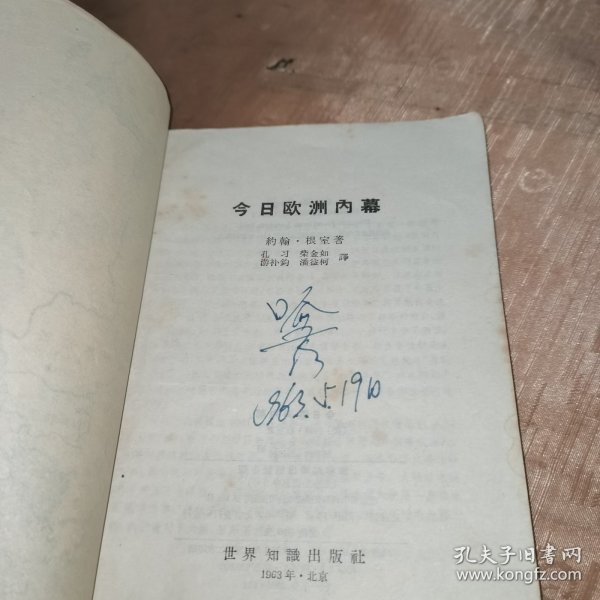 今日欧洲內幕
約翰·根室著
孔 习 柴金如
游补鈞 潘益柯 譯
1963.5.19日
世界知識出版社
1963年·北京
孔夫子旧书网
www.kongfz.com